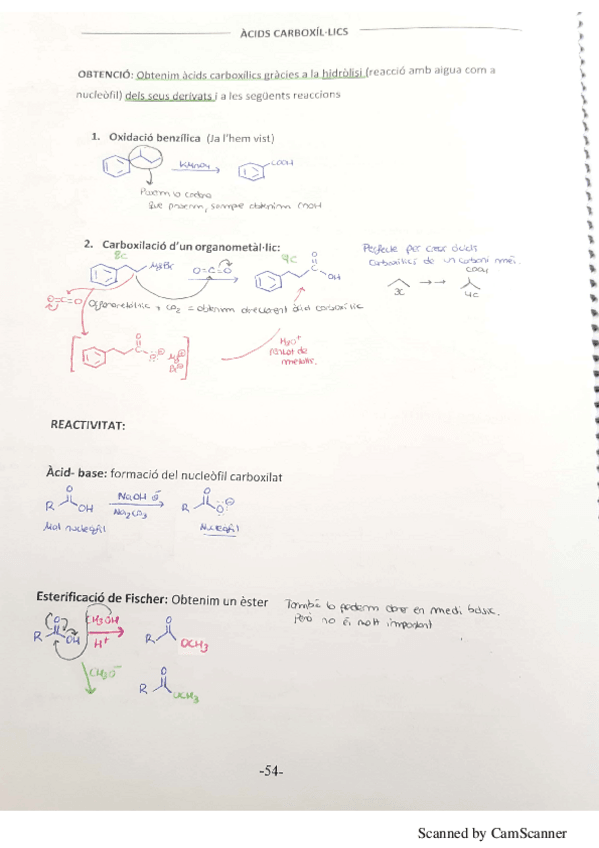 ÀCIDS CARBOXÍL·LICS
OBTENCIÓ: Obtenim àcids carboxílics gràcies a la hidròlisi (reacció amb aigua com a
nucleòfil) dels seus derivats i a les següents reaccions
1. Oxidació benzílica (Ja l'hem vist)
KMnO4
COOH
Que posem, sempre obtenim COOH
2. Carboxilació d'un organometàl·lic:
Perfecte per crear àcids
carboxílics de un carboni més.
8C
MgBr
O=C=O
9C
O
OH
COOH
3C
4C
O=C=O
Organometàl·lic + CO2 = obtenim directament àcid carboxílic
O
O
Mg
Br
H3O+
REACTIVITAT:
Àcid- base: formació del nucleòfil carboxilat
R
O
OH
NaOH
Na2CO3
R
O
O
Mal nucleòfil
Nucleòfil
Esterificació de Fischer: Obtenim un èster
També ho podem obrir en medi bàsic.
Però no és molt important
R
O
OH
CH3OH
H+
R
O
OCH3
CH3O-
R
O
OCH3
-54-
Scanned by CamScanner